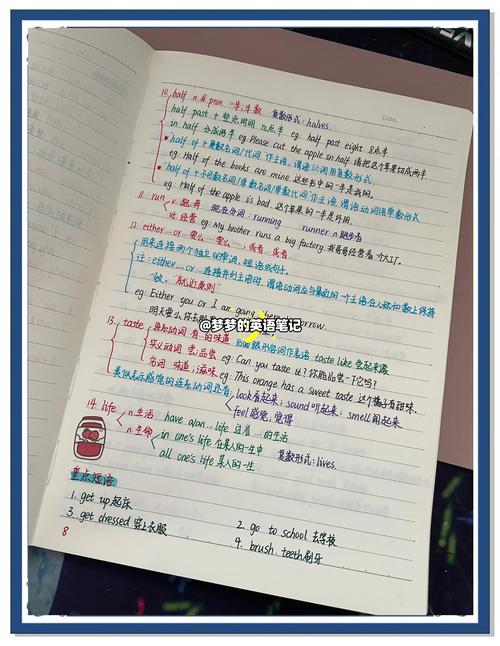 Date.
10. half n & pron 一半;半数 复数形式: halves.
half past + 整点时间 n点半 eg. half past eight 8点半
in half 分成两半 eg. Please cut the apple in half 请把这个苹果切成两半
half of + 复数名词/代词 作主语,谓语动词用复数形式.
eg: Half of the books are mine. 这些书中的一半是我的.
half of + 不可数名词/单数名词/单数代词 作主语,谓语动词用单数形式
eg: Half of the apple is bad. 这个苹果的一半是坏的.
11. run v. 跑;奔 现在分词: running runner n.跑步者
vt. 经营 eg: My brother runs a big factory. 我哥哥经营着一个大工厂.
12. either...or... 要么...要么...;或者...或者...
用来连接两个独立的单词,短语或句子.
注: either...or...连接并列主语时,谓语动词应与最近的一个主语在人称和数上保持
一致, "就近原则"
eg: Either you or I am going there tomorrow.
明天要么你去
@梦梦的英语笔记
13. taste 连系动词 有...的味道 后面跟形容词作表语 taste like 尝起来像
实义动词 尝;品尝 eg: Can you taste it? 你能品尝一下它吗?
名词 味道;滋味 eg: This orange has a sweet taste 这个橘子有甜味.
类似表示感觉的连系动词还有 look看起来; sound听起来; smell闻起来
feel感觉;觉得
14. life n.生活 have a/an...life 过着...的生活
n.生命 in one's life 在某人的一生中 复数形式: lives.
all one's life 某人的一生
重点短语
1. get up起床
2. go to school 去学校
3. get dressed 穿上衣服
4. brush teeth刷牙
8